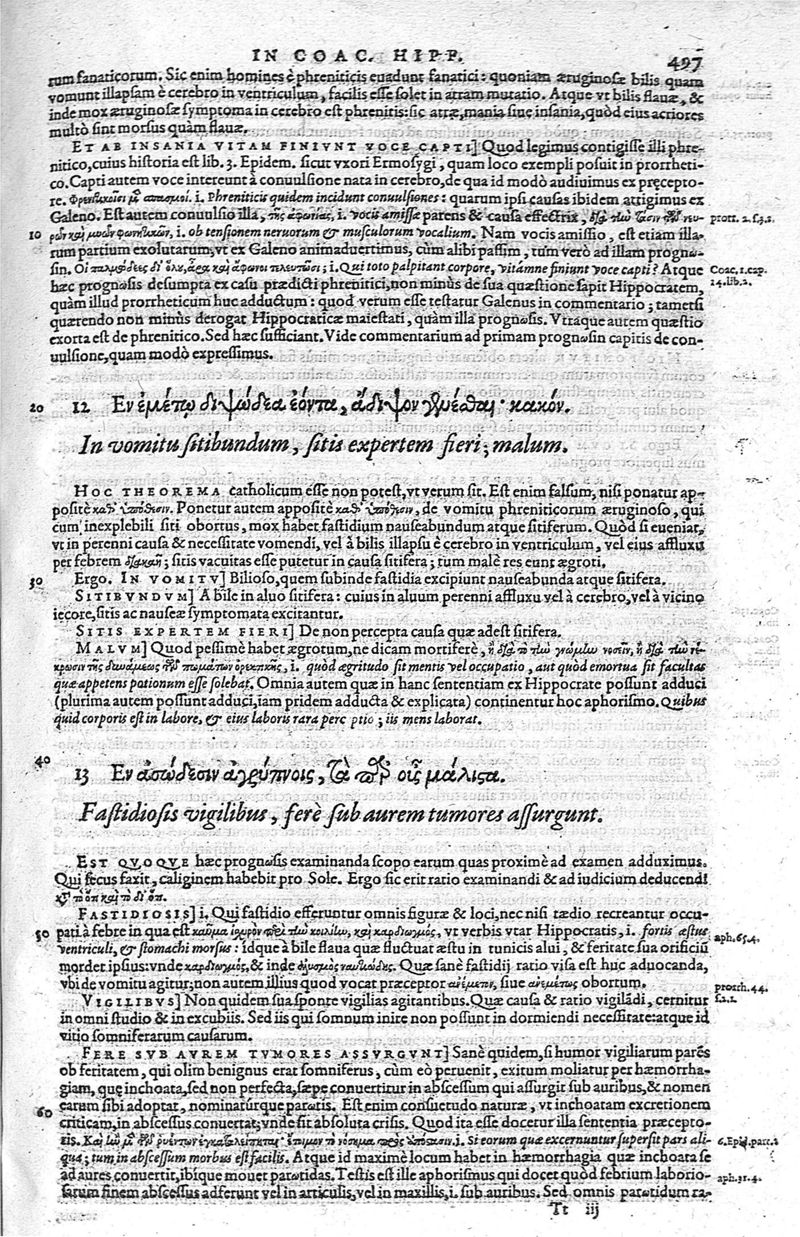 IN COAC. HIPP. 497
rum fanaticorum. Sic enim homines è phreniticis euadunt fanatici: quoniam æruginosæ bilis quam
vomunt illapsam è cerebro in ventriculum, facilis esse solet in atram mutatio. Atque vt bilis flauæ, &
inde mox æruginosæ symptoma in cerebro est phrenitis: sic atræ, mania siue insania, quòd eius acriores
multò sint morsus quàm flauæ.
ET AB INSANIA VITAM FINIVNT VOCE CAPTI] Quod legimus contigisse illi phre-
nitico, cuius historia est lib. 3. Epidem. sicut vxori Ermosygi, quam loco exempli posuit in prorrheti-
co. Capti autem voce intereunt à conuulsione nata in cerebro, de qua id modò audiuimus ex præcepto-
re. i. Phreniticis quidem incidunt conuulsiones: quarum ipsi causas ibidem attigimus ex
Galeno. Est autem conuulsio illa, τῆς ἀφωνίας, i. vocis amissæ parens & causa effectrix, prorr. 2. s.3.2.
10 i. ob tensionem neruorum & musculorum vocalium. Nam vocis amissio, est etiam illa-
rum partium exolutarum, vt ex Galeno animaduertimus, cùm alibi passim, tum verò ad illam progno-
sin. i. Qui toto palpitant corpore, vitámne finiunt voce capti? Atque Coac. 1. cap.
hæc prognosis desumpta ex casu prædicti phrenitici, non minùs de sua quæstione sapit Hippocratem, 14. lib. 2.
quàm illud prorrheticum huc adductum: quod verum esse testatur Galenus in commentario; tametsi
quærendo non minùs derogat Hippocraticæ maiestati, quàm illa prognosis. Vtraque autem quæstio
exorta est de phrenitico. Sed hæc sufficiant. Vide commentarium ad primam prognosin capitis de con-
uulsione, quam modò expressimus.
20 12 Εν ἐμέτῳ διψώδεα ἐόντα, ἄδιψον γενέσθαι· κακόν.
In vomitu sitibundum, sitis expertem fieri; malum.
HOC THEOREMA catholicum esse non potest, vt verum sit. Est enim falsum, nisi ponatur ap-
positè καθ' ὑπόθεσιν. Ponetur autem appositè καθ' ὑπόθεσιν, de vomitu phreniticorum æruginoso, qui
cum inexplebili siti obortus, mox habet fastidium nauseabundum atque sitiferum. Quòd si eueniat,
vt in perenni causa & necessitate vomendi, vel à bilis illapsu è cerebro in ventriculum, vel eius affluxu
per febrem sitis vacuitas esse putetur in causa sitifera; tum malè res eunt ægroti.
30 Ergo. IN VOMITV] Bilioso, quem subinde fastidia excipiunt nauseabunda atque sitifera.
SITIBVNDVM] A bile in aluo sitifera: cuius in aluum perenni affluxu vel à cerebro, vel à vicino
iecore, sitis ac nauseæ symptomata excitantur.
SITIS EXPERTEM FIERI] De non percepta causa quæ adest sitifera.
MALVM] Quòd pessimè habet ægrotum, ne dicam mortiferè,
i. quòd ægritudo sit mentis vel occupatio, aut quòd emortua sit facultas
quæ appetens potionum esse solebat. Omnia autem quæ in hanc sententiam ex Hippocrate possunt adduci
(plurima autem possunt adduci, iam pridem adducta & explicata) continentur hoc aphorismo. Quibus
quid corporis est in labore, & eius laboris rara perceptio; iis mens laborat.
40
13 Εν ἀσώδεσιν ἀγρύπνοις, τὰ παρ' οὖς μάλιστα.
Fastidiosis vigilibus, ferè sub aurem tumores assurgunt.
EST QVOQVE hæc prognosis examinanda scopo earum quas proximè ad examen adduximus.
Qui secus faxit, caliginem habebit pro Sole. Ergo sic erit ratio examinandi & ad iudicium deducendi
κατὰ τὸ ὅτι καὶ τὸ διότι.
FASTIDIOSIS] i. Qui fastidio efferuntur omnis figuræ & loci, nec nisi tædio recreantur occu-
50 pati à febre in qua est καῦμα ἰσχυρὸν περὶ τὴν κοιλίην, καὶ καρδιωγμὸς, vt verbis vtar Hippocratis, i. fortis æstus
ventriculi, & stomachi morsus: idque à bile flaua quæ fluctuat æstu in tunicis alui, & feritate sua orificiũ aph. 65. 4.
mordet ipsius: vnde καρδιωγμὸς, & inde Quæ sanè fastidij ratio visa est huc aduocanda,
vbi de vomitu agitur; non autem illius quod vocat præceptor siue obortum. prorrh. 44.
VIGILIBVS] Non quidem sua sponte vigilias agitantibus. Quæ causa & ratio vigilãdi, cernitur s.2.1.
in omni studio & in excubiis. Sed iis qui somnum inire non possunt in dormiendi necessitate: atque id
vitio somniferarum causarum.
FERE SVB AVREM TVMORES ASSVRGVNT] Sanè quidem, si humor vigiliarum parẽs
ob feritatem, qui olim benignus erat somniferus, cùm eò peruenit, exitum moliatur per hæmorrha-
giam, quę inchoata, sed non perfecta, sæpe conuertitur in abscessum qui assurgit sub auribus, & nomen
60 earum sibi adoptat, nominatúrque parotis. Est enim consuetudo naturæ, vt inchoatam excretionem
criticam, in abscessus conuertat; vnde sit absoluta crisis. Quod ita esse docetur illa sententia præcepto-
ris. i. Si eorum quæ excernuntur supersit pars ali- 6. Epid. part. 2
qua; tum in abscessum morbus est facilis. Atque id maximè locum habet in hæmorrhagia quæ inchoata se
ad aures conuertit, ibique mouet parotidas. Testis est ille aphorismus qui docet quòd febrium laborio- aph. 31. 4.
sarum finem abscessus adferunt vel in articulis, vel in maxillis, i. sub auribus. Sed omnis parotidum ra-
Tt iij